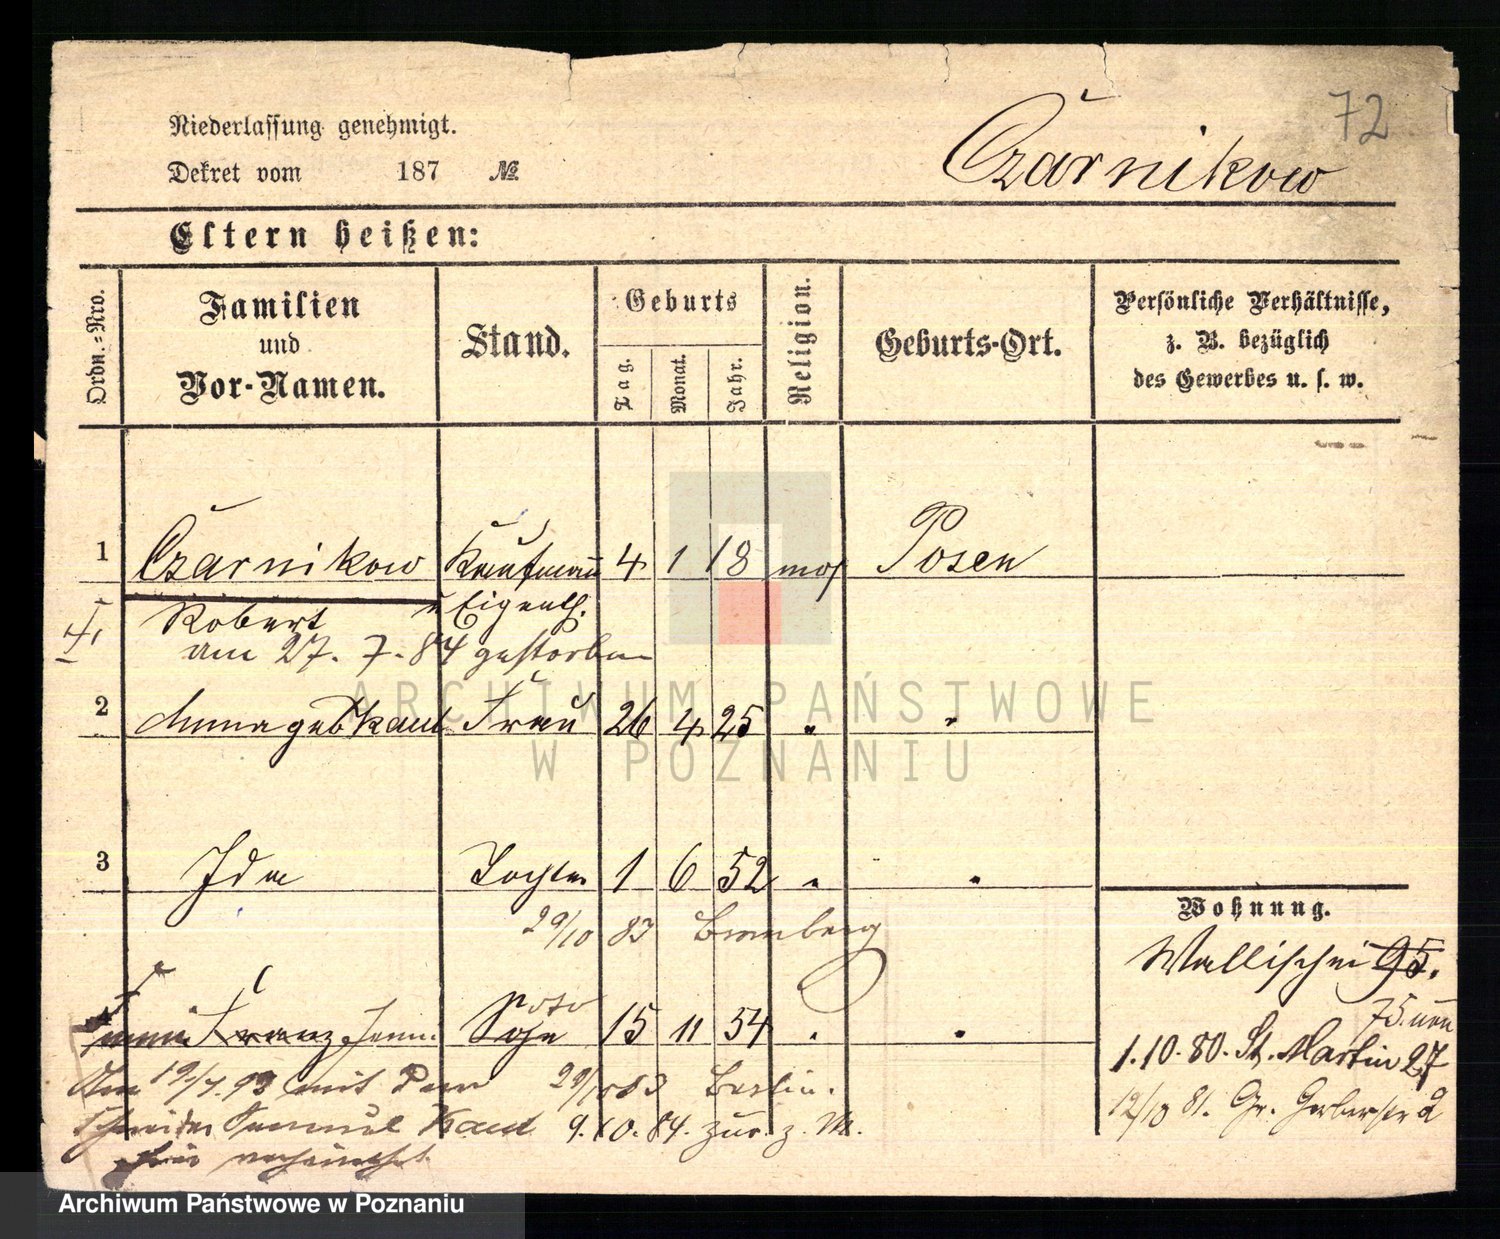 72
Niederlassung genehmigt.
Czarnikow
Dekret vom 187 №
Eltern heißen:
Ordn.=Nro.
Familien
und
Vor-Namen.
Stand.
Geburts
Tag.
Monat.
Jahr.
Religion.
Geburts-Ort.
Persönliche Verhältnisse,
z. B. bezüglich
des Gewerbes u. s. w.
1 Czarnikow Kaufmann 4 1 18 mos Posen
Robert u Eigenth.
am 27. 7. 84 gestorben
ARCHIWUM PAŃSTWOWE
W POZNANIU
2 Anna geb Kaul Frau 26 4 25 " "
3 Ida Tochter 1 6 52 " "
29/10 83 Bromberg
Wohnung.
Wallischei 95.
75. neu
Franz Sohn 15 11 54 " "
1.10.80. St. Martin 27
Am 19/7.93 mit dem 29/10 83 Berlin.
12/10 81. Gr. Gerberstr 2
Schneider Samuel Kaul 9.10.84. zur. z. M.
hier verheirathet
Archiwum Państwowe w Poznaniu